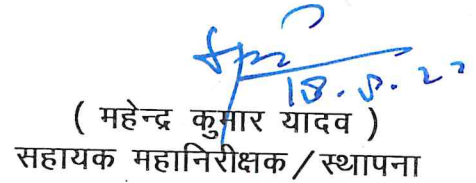 18.8.22
( महेन्द्र कुमार यादव )
सहायक महानिरीक्षक / स्थापना